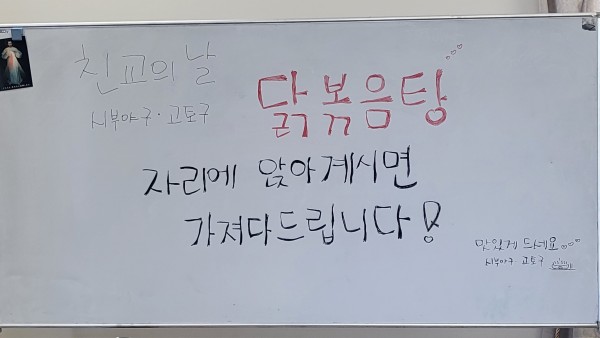 친교의 날
시부야구·고토구
닭볶음탕
자리에 앉아계시면
가져다드립니다!
맛있게 드세요...
시부야구·고토구